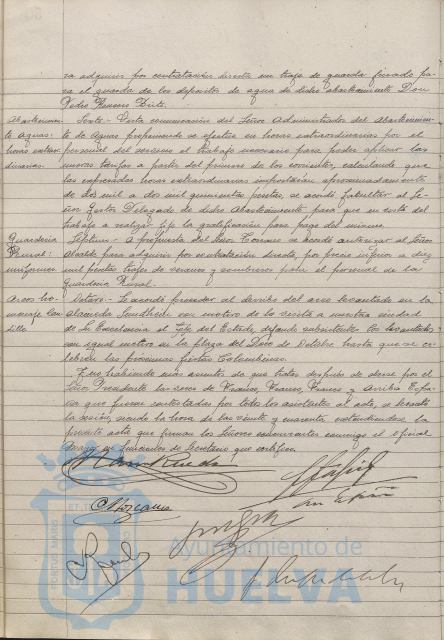 ra adquirir por contratación directa un traje de guarda jurado pa-
ra el guarda de los depósitos de agua de dicho abastecimiento Don
Pedro Romero
Abastecimien-
to Aguas:
horas extraor-
dinarias.
Sexto.- Vista comunicación del Señor Administrador del Abastecimien-
to de Aguas proponiendo se efectúe en horas extraordinarias por el
personal del servicio el trabajo necesario para poder aplicar las
nuevas tarifas a partir del primero de los corrientes, calculando que
las expresadas horas extraordinarias importarían aproximadamente
de dos mil a dos mil quinientas pesetas, se acordó facultar al Se-
ñor Gestor Delegado de dicho Abastecimiento para que en vista del
trabajo a realizar fije la gratificación para pago del mismo.
Guardería
Rural:
uniformes
Séptimo.- A propuesta del Señor se acordó autorizar al Señor
Alcalde para adquirir por contratación directa, por precio inferior a diez
mil pesetas trajes de verano y sombreros para el personal de la
Guardería Rural.
Arcos ho-
menaje Cau-
dillo
Octavo.- Se acordó proceder al derribo del arco levantado en la
Alameda Sundheim con motivo de la visita a nuestra ciudad
de Su Excelencia el Jefe del Estado, dejando subsistente los levantados
con igual motivo en la plaza del Doce de Octubre hasta que se ce-
lebren las próximas fiestas Colombinas.
Y no habiendo más asuntos de que tratar después de darse por el
Señor Presidente las voces de Franco, Franco, Franco y Arriba Espa-
ña que fueron contestadas por todos los asistentes al acto, se levantó
la sesión, siendo la hora de las veinte y cuarenta extendiéndose la
presente acta que firman los Señores concurrentes conmigo el oficial
en funciones de Secretario que certifico.
Ayuntamiento de
HUELVA